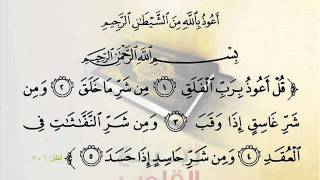 أَعُوذُ بِٱللَّهِ مِنَ ٱلشَّيْطَـٰنِ ٱلرَّجِيمِ
بِسْمِ ٱللَّهِ ٱلرَّحْمَـٰنِ ٱلرَّحِيمِ
﴿ قُلْ أَعُوذُ بِرَبِّ ٱلْفَلَقِ ۝١ مِن شَرِّ مَا خَلَقَ ۝٢ وَمِن
شَرِّ غَاسِقٍ إِذَا وَقَبَ ۝٣ وَمِن شَرِّ ٱلنَّفَّـٰثَـٰتِ فِى
ٱلْعُقَدِ ۝٤ وَمِن شَرِّ حَاسِدٍ إِذَا حَسَدَ ۝٥ ﴾ الفلق: ١ - ٥